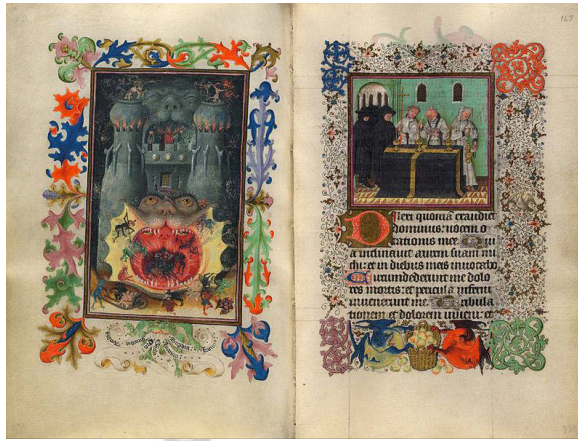 Dilexi quoniā exaudiet
dominus: uocem o
rationis mee. Qui
a inclinauit aurem suam mi
chi: et in diebus meis inuocabo
Circumdederunt me dolo
res mortis: et pericula inferni
inuenerunt me. Tribula
tionem et dolorem inueni: et